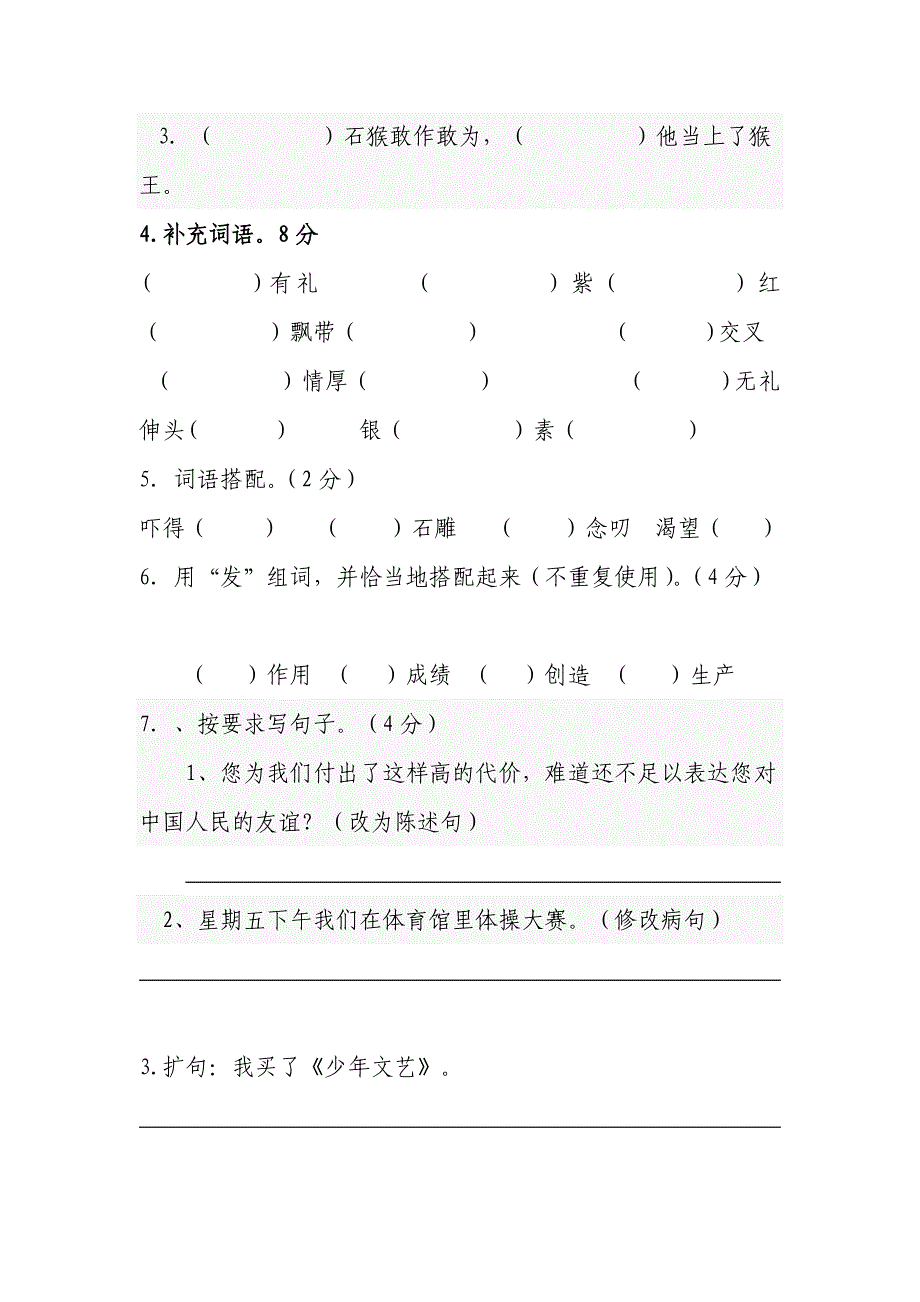 3．（　　　　）石猴敢作敢为，（　　　　）他当上了猴
王。
4.补充词语。8分
（　　　　）有礼　　　（　　　　）紫（　　　　）红
（　　　　）飘带（　　　　）　　　　（　　　）交叉
（　　　　）情厚（　　　　）　　　　（　　　）无礼
伸头（　　　）　　银（　　　　）素（　　　　）
5．词语搭配。（2分）
吓得（　　）　（　　）石雕　（　　）念叨　渴望（　）
6．用“发”组词，并恰当地搭配起来（不重复使用）。（4分）
（　）作用　（　）成绩　（　）创造　（　）生产
7．、按要求写句子。（4分）
1、您为我们付出了这样高的代价，难道还不足以表达您对
中国人民的友谊？（改为陈述句）
2、星期五下午我们在体育馆里体操大赛。（修改病句）
3.扩句：我买了《少年文艺》。